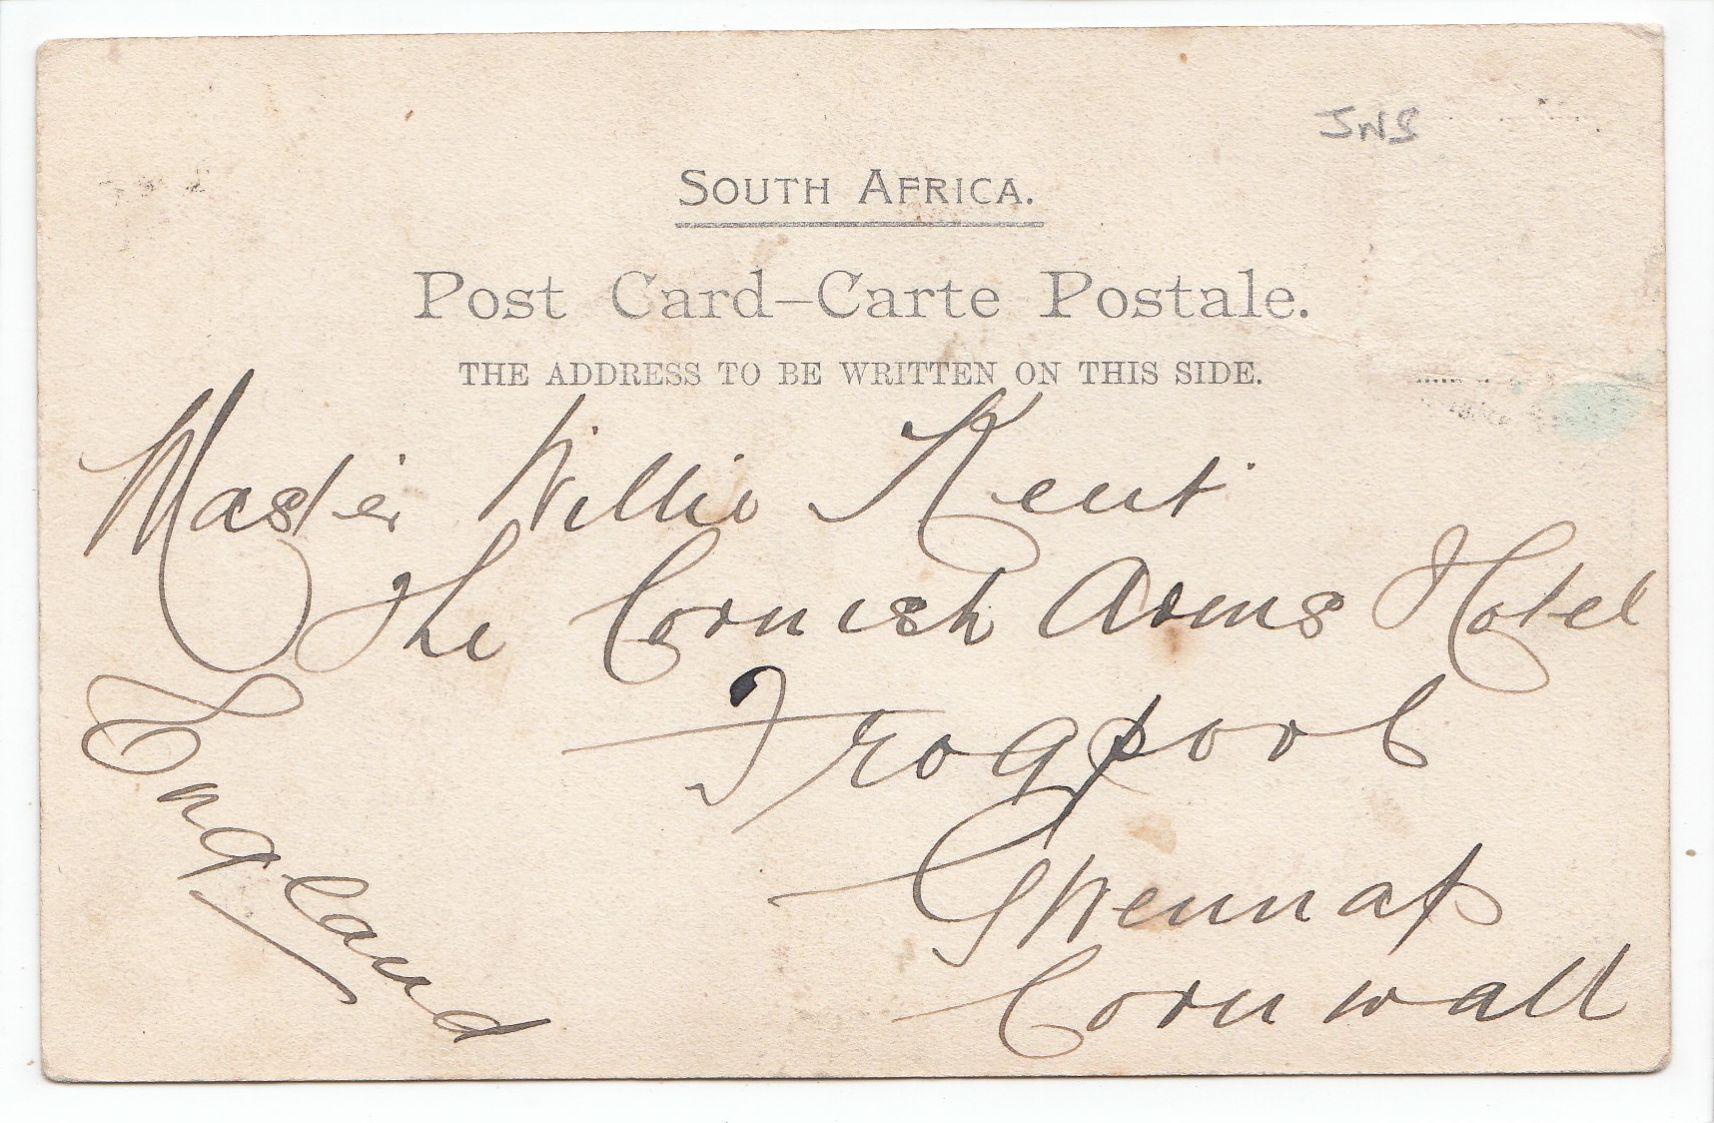 JWS
SOUTH AFRICA.
Post Card–Carte Postale.
THE ADDRESS TO BE WRITTEN ON THIS SIDE.
Master Willie Kent
The Cornish Arms Hotel
Frogpool
Gwennap
Cornwall
England